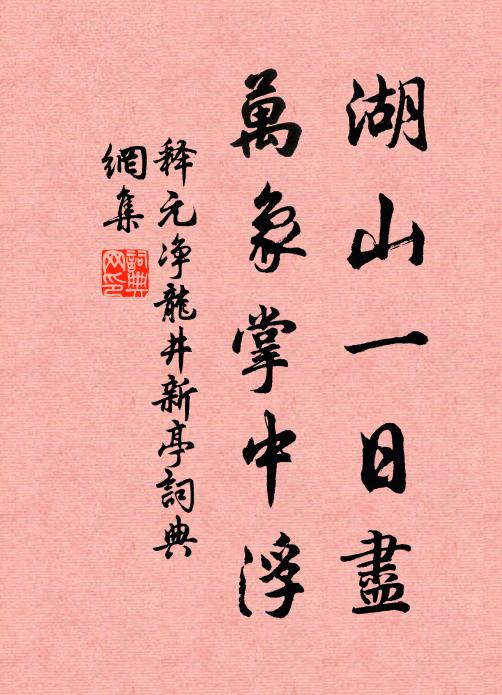 湖山一日盡
萬象掌中浮
释元净龍井新亭詞典
網集
詞典
网印